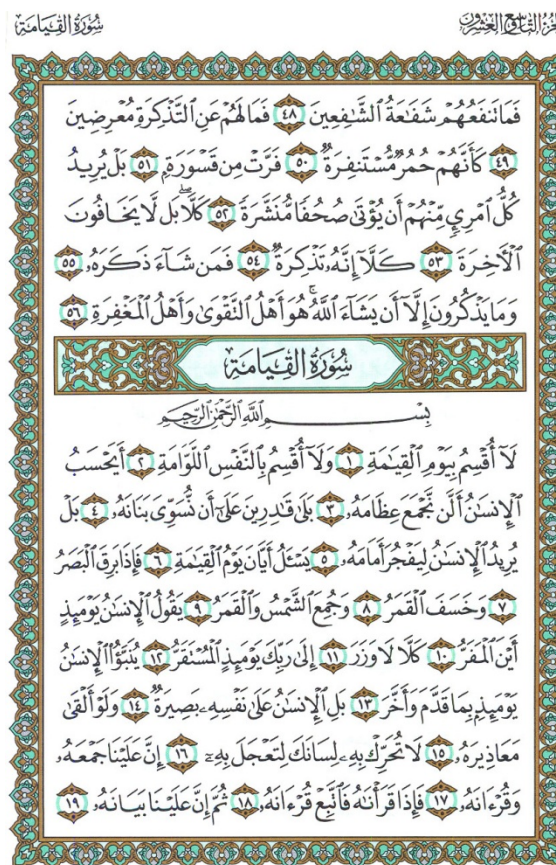 سُورَةُ القِيَامَة
الجُزْءُ التَّاسِعُ وَالعِشْرُونَ
فَمَا تَنفَعُهُمْ شَفَٰعَةُ ٱلشَّٰفِعِينَ ٤٨ فَمَا لَهُمْ عَنِ ٱلتَّذْكِرَةِ مُعْرِضِينَ
٤٩ كَأَنَّهُمْ حُمُرٌ مُّسْتَنفِرَةٌ ٥٠ فَرَّتْ مِن قَسْوَرَةٍ ٥١ بَلْ يُرِيدُ
كُلُّ ٱمْرِئٍ مِّنْهُمْ أَن يُؤْتَىٰ صُحُفًا مُّنَشَّرَةً ٥٢ كَلَّا ۖ بَل لَّا يَخَافُونَ
ٱلْءَاخِرَةَ ٥٣ كَلَّآ إِنَّهُۥ تَذْكِرَةٌ ٥٤ فَمَن شَآءَ ذَكَرَهُۥ ٥٥
وَمَا يَذْكُرُونَ إِلَّآ أَن يَشَآءَ ٱللَّهُ ۚ هُوَ أَهْلُ ٱلتَّقْوَىٰ وَأَهْلُ ٱلْمَغْفِرَةِ ٥٦
سُورَةُ القِيَامَة
بِسْمِ ٱللَّهِ ٱلرَّحْمَٰنِ ٱلرَّحِيمِ
لَآ أُقْسِمُ بِيَوْمِ ٱلْقِيَٰمَةِ ١ وَلَآ أُقْسِمُ بِٱلنَّفْسِ ٱللَّوَّامَةِ ٢ أَيَحْسَبُ
ٱلْإِنسَٰنُ أَلَّن نَّجْمَعَ عِظَامَهُۥ ٣ بَلَىٰ قَٰدِرِينَ عَلَىٰٓ أَن نُّسَوِّىَ بَنَانَهُۥ ٤ بَلْ
يُرِيدُ ٱلْإِنسَٰنُ لِيَفْجُرَ أَمَامَهُۥ ٥ يَسْـَٔلُ أَيَّانَ يَوْمُ ٱلْقِيَٰمَةِ ٦ فَإِذَا بَرِقَ ٱلْبَصَرُ
٧ وَخَسَفَ ٱلْقَمَرُ ٨ وَجُمِعَ ٱلشَّمْسُ وَٱلْقَمَرُ ٩ يَقُولُ ٱلْإِنسَٰنُ يَوْمَئِذٍ
أَيْنَ ٱلْمَفَرُّ ١٠ كَلَّا لَا وَزَرَ ١١ إِلَىٰ رَبِّكَ يَوْمَئِذٍ ٱلْمُسْتَقَرُّ ١٢ يُنَبَّؤُا۟ ٱلْإِنسَٰنُ
يَوْمَئِذٍۭ بِمَا قَدَّمَ وَأَخَّرَ ١٣ بَلِ ٱلْإِنسَٰنُ عَلَىٰ نَفْسِهِۦ بَصِيرَةٌ ١٤ وَلَوْ أَلْقَىٰ
مَعَاذِيرَهُۥ ١٥ لَا تُحَرِّكْ بِهِۦ لِسَانَكَ لِتَعْجَلَ بِهِۦٓ ١٦ إِنَّ عَلَيْنَا جَمْعَهُۥ
وَقُرْءَانَهُۥ ١٧ فَإِذَا قَرَأْنَٰهُ فَٱتَّبِعْ قُرْءَانَهُۥ ١٨ ثُمَّ إِنَّ عَلَيْنَا بَيَانَهُۥ ١٩